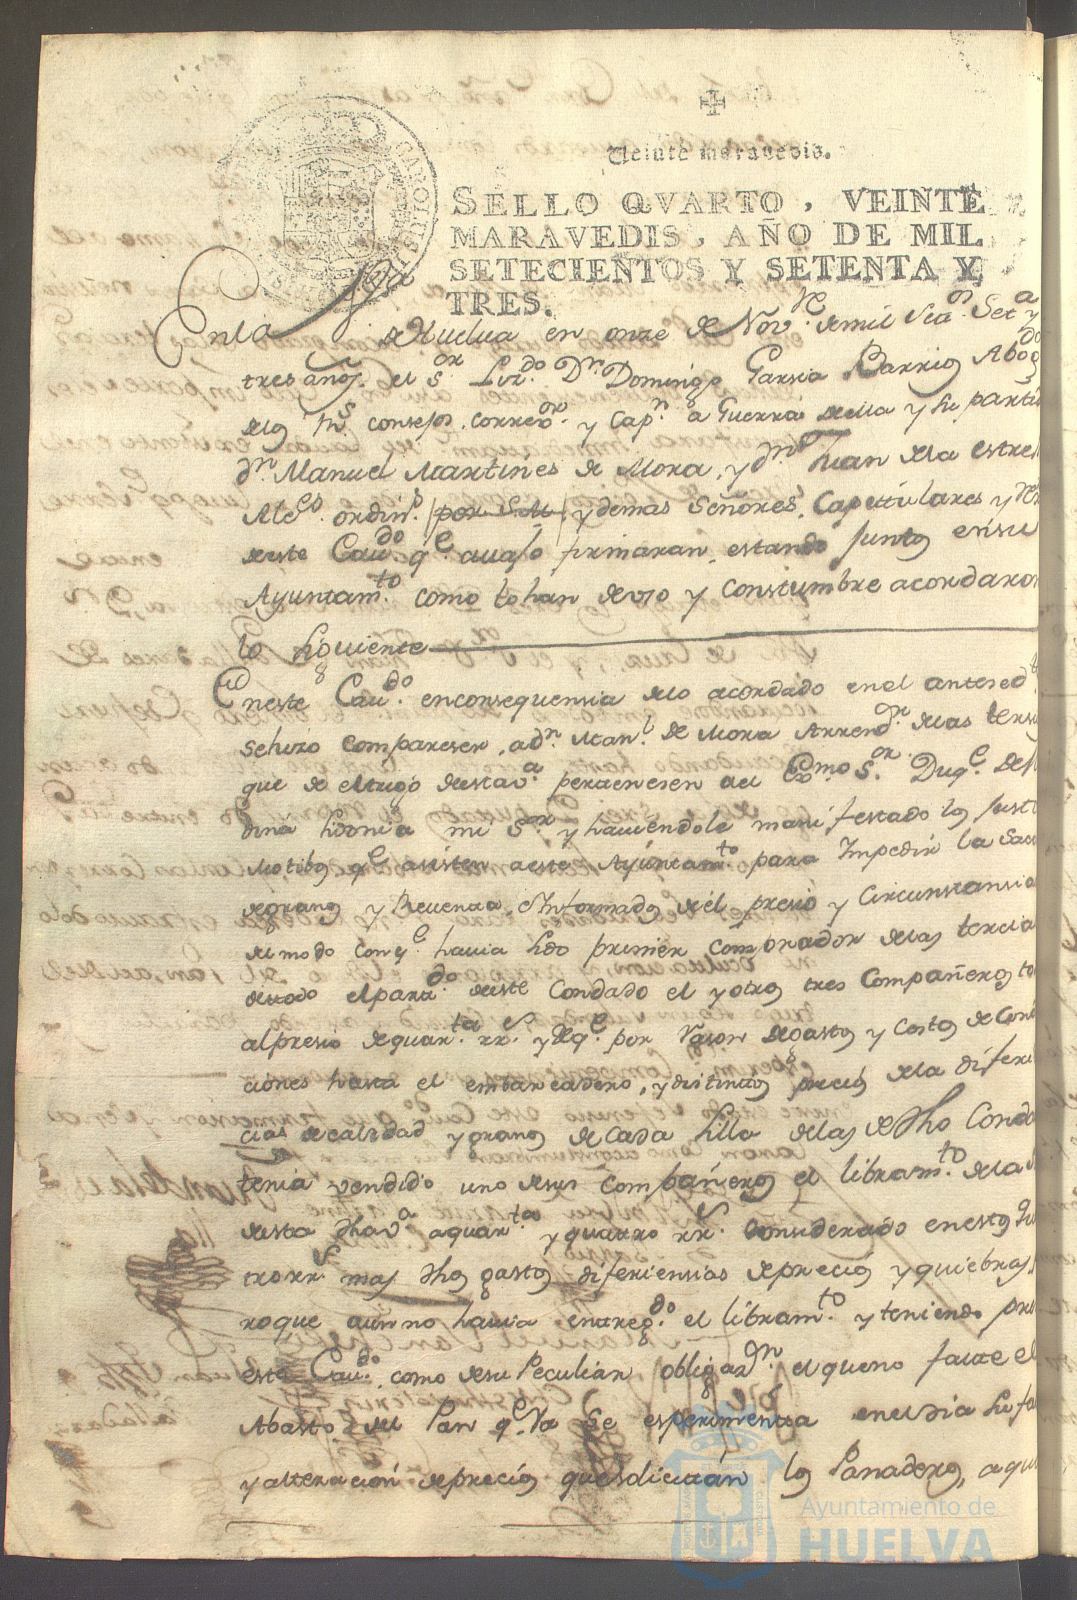 Veinte maravedis.
SELLO QVARTO, VEINTE
MARAVEDIS, AÑO DE MIL
SETECIENTOS Y SETENTA Y
TRES.
En la Villa de Huelua en onze de Nov.re de mil Setta y
tres años. el S.or Liz.do D.n Domingo Garsia Barrios Abog.do
de los R.s consejos, corre.or y Cap.n a Guerra de ella y su parti
D.n Manuel Martines de Mora, y D.n Juan de la estre
Alc.es ordin.s por S.M. y demas Señores Capitulares y
de este Cau.do q.e auajo firmaran, estando juntos en su
Ayuntam.to como lo han de vso y Constumbre acordaron
lo siguiente
En este Cau.do en consequensia de lo acordado en el antesed
se hizo compareser, a D.n Man.l de Mora Arrend.or de las tersi
que de el trigo de esta v.a pertenesen a el Ex.mo S.or Duq.e de
dina Sidonia mi S.or y hauiendole manifestado los just
Motibos q.e asisten a este Ayuntam.to para Impedir la Saca
de granos y Reuenta, e Informados de él presio y Circunstansia
de modo con q.e hauia sido primer comprador de las tercia
de todo el part.do de este Condado el y otros tres Compañeros to
al presio de quar.ta rr.s y q.e por Rason de gastos y Costos de Con
ciones hasta el embarcadero, y distintos precios de la diferi
cias de calidad y granos de Cada Villa de las de dho Conda
tenia vendido uno de sus Compañeros el libram.to de la
de esta dha v.a a quar.ta y quatro rr.s considerado en estos
tro rr.s mas dhos gastos diferiensias de precios y quiebras,
ro que aun no hauia entreg.do el libram.to y teniendo pre
este Cau.do como de su Peculiar obligaz.on el que no falte el
Abasto de el Pan q.e Ya se esperimenta en el dia su fa
y alterasion de precios que solicitan los Panaderos, a qui
Ayuntamiento de
HUELVA